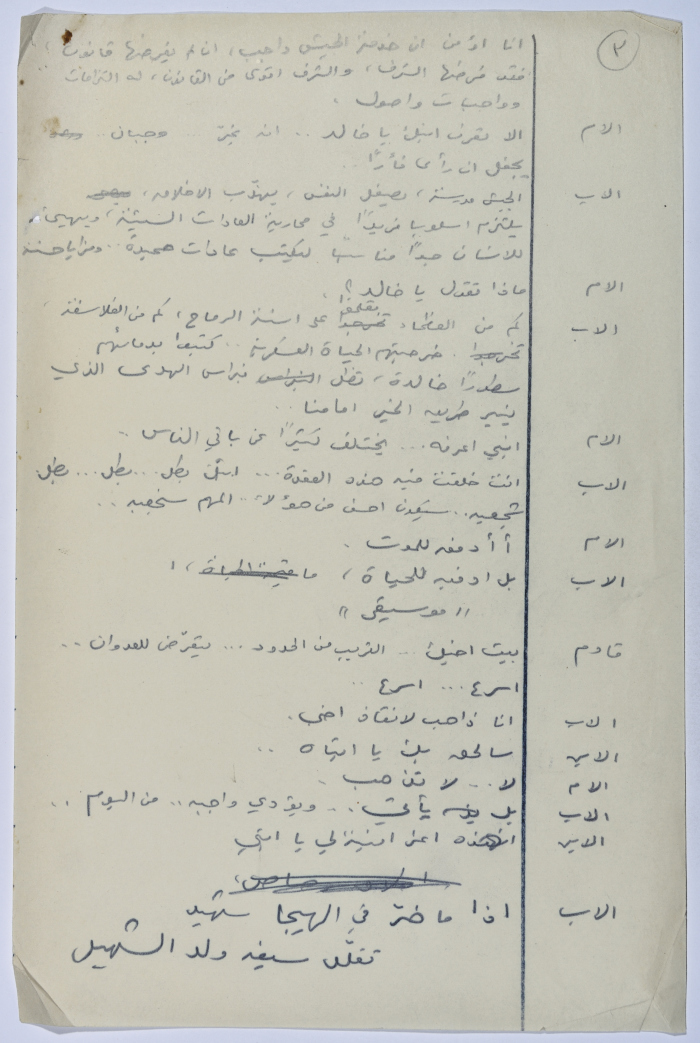 ٢
انا اؤمن ان خدمة الجيش واجب، ان لم يفرضها قانون
فقد فرضها الشرف، والشرف اقوى من القانون، له التزامات
وواجبات واصول.
الام الا تعرف ابنك يا خالد .. انه غرّ ... وجبان ..
يجفل ان رأى فأرًا ..
الاب الجيش مدرسة، يصقل النفس، يهذّب الاخلاق،
يلتزم اسلوبا فريدًا في محاربة العادات السيئة، ويهيئ
للانسان جوًا مناسبًا ليكتسب عادات حميدة .. ومزايا حسنة
الام ماذا تقول يا خالد؟
الاب كم من العظماء تخرجوا على اسنة الرماح، كم من الفلاسفة
تخرجوا. خرجتهم الحياة العسكرية .. كتبوا بدمائهم
سطورًا خالدة، تظل نبراس الهدى الذي
ينير طريق الخير امامنا ..
الام ابني اعرفه ... يختلف كثيرًا عن باقي الناس ..
الاب انت خلقت فيه هذه العقدة ... ابنك بطل ... بطل ... بطل
شجعيه .. سيكون احسن من هؤلاء .. المهم شجعيه ..
الام أأدفعه للموت.
الاب بل ادفعيه للحياة، ما قيمة الحياة،!
" موسيقى "
قادم بيت اخيك ... القريب من الحدود ... يتعرّض للعدوان ..
اسرع ... اسرع ..
الاب انا ذاهب لانقاذ اخي.
الابن سالحق بك يا ابتاه ..
الام لا ... لا تذهب.
الاب بل يأتي ... ويؤدي واجبه .. من اليوم ..
الابن هذه اعز امنية لي يا ابتي
الاب اذا ما خرّ في الهيجا شهيد
تقلّد سيفه ولد الشهيد